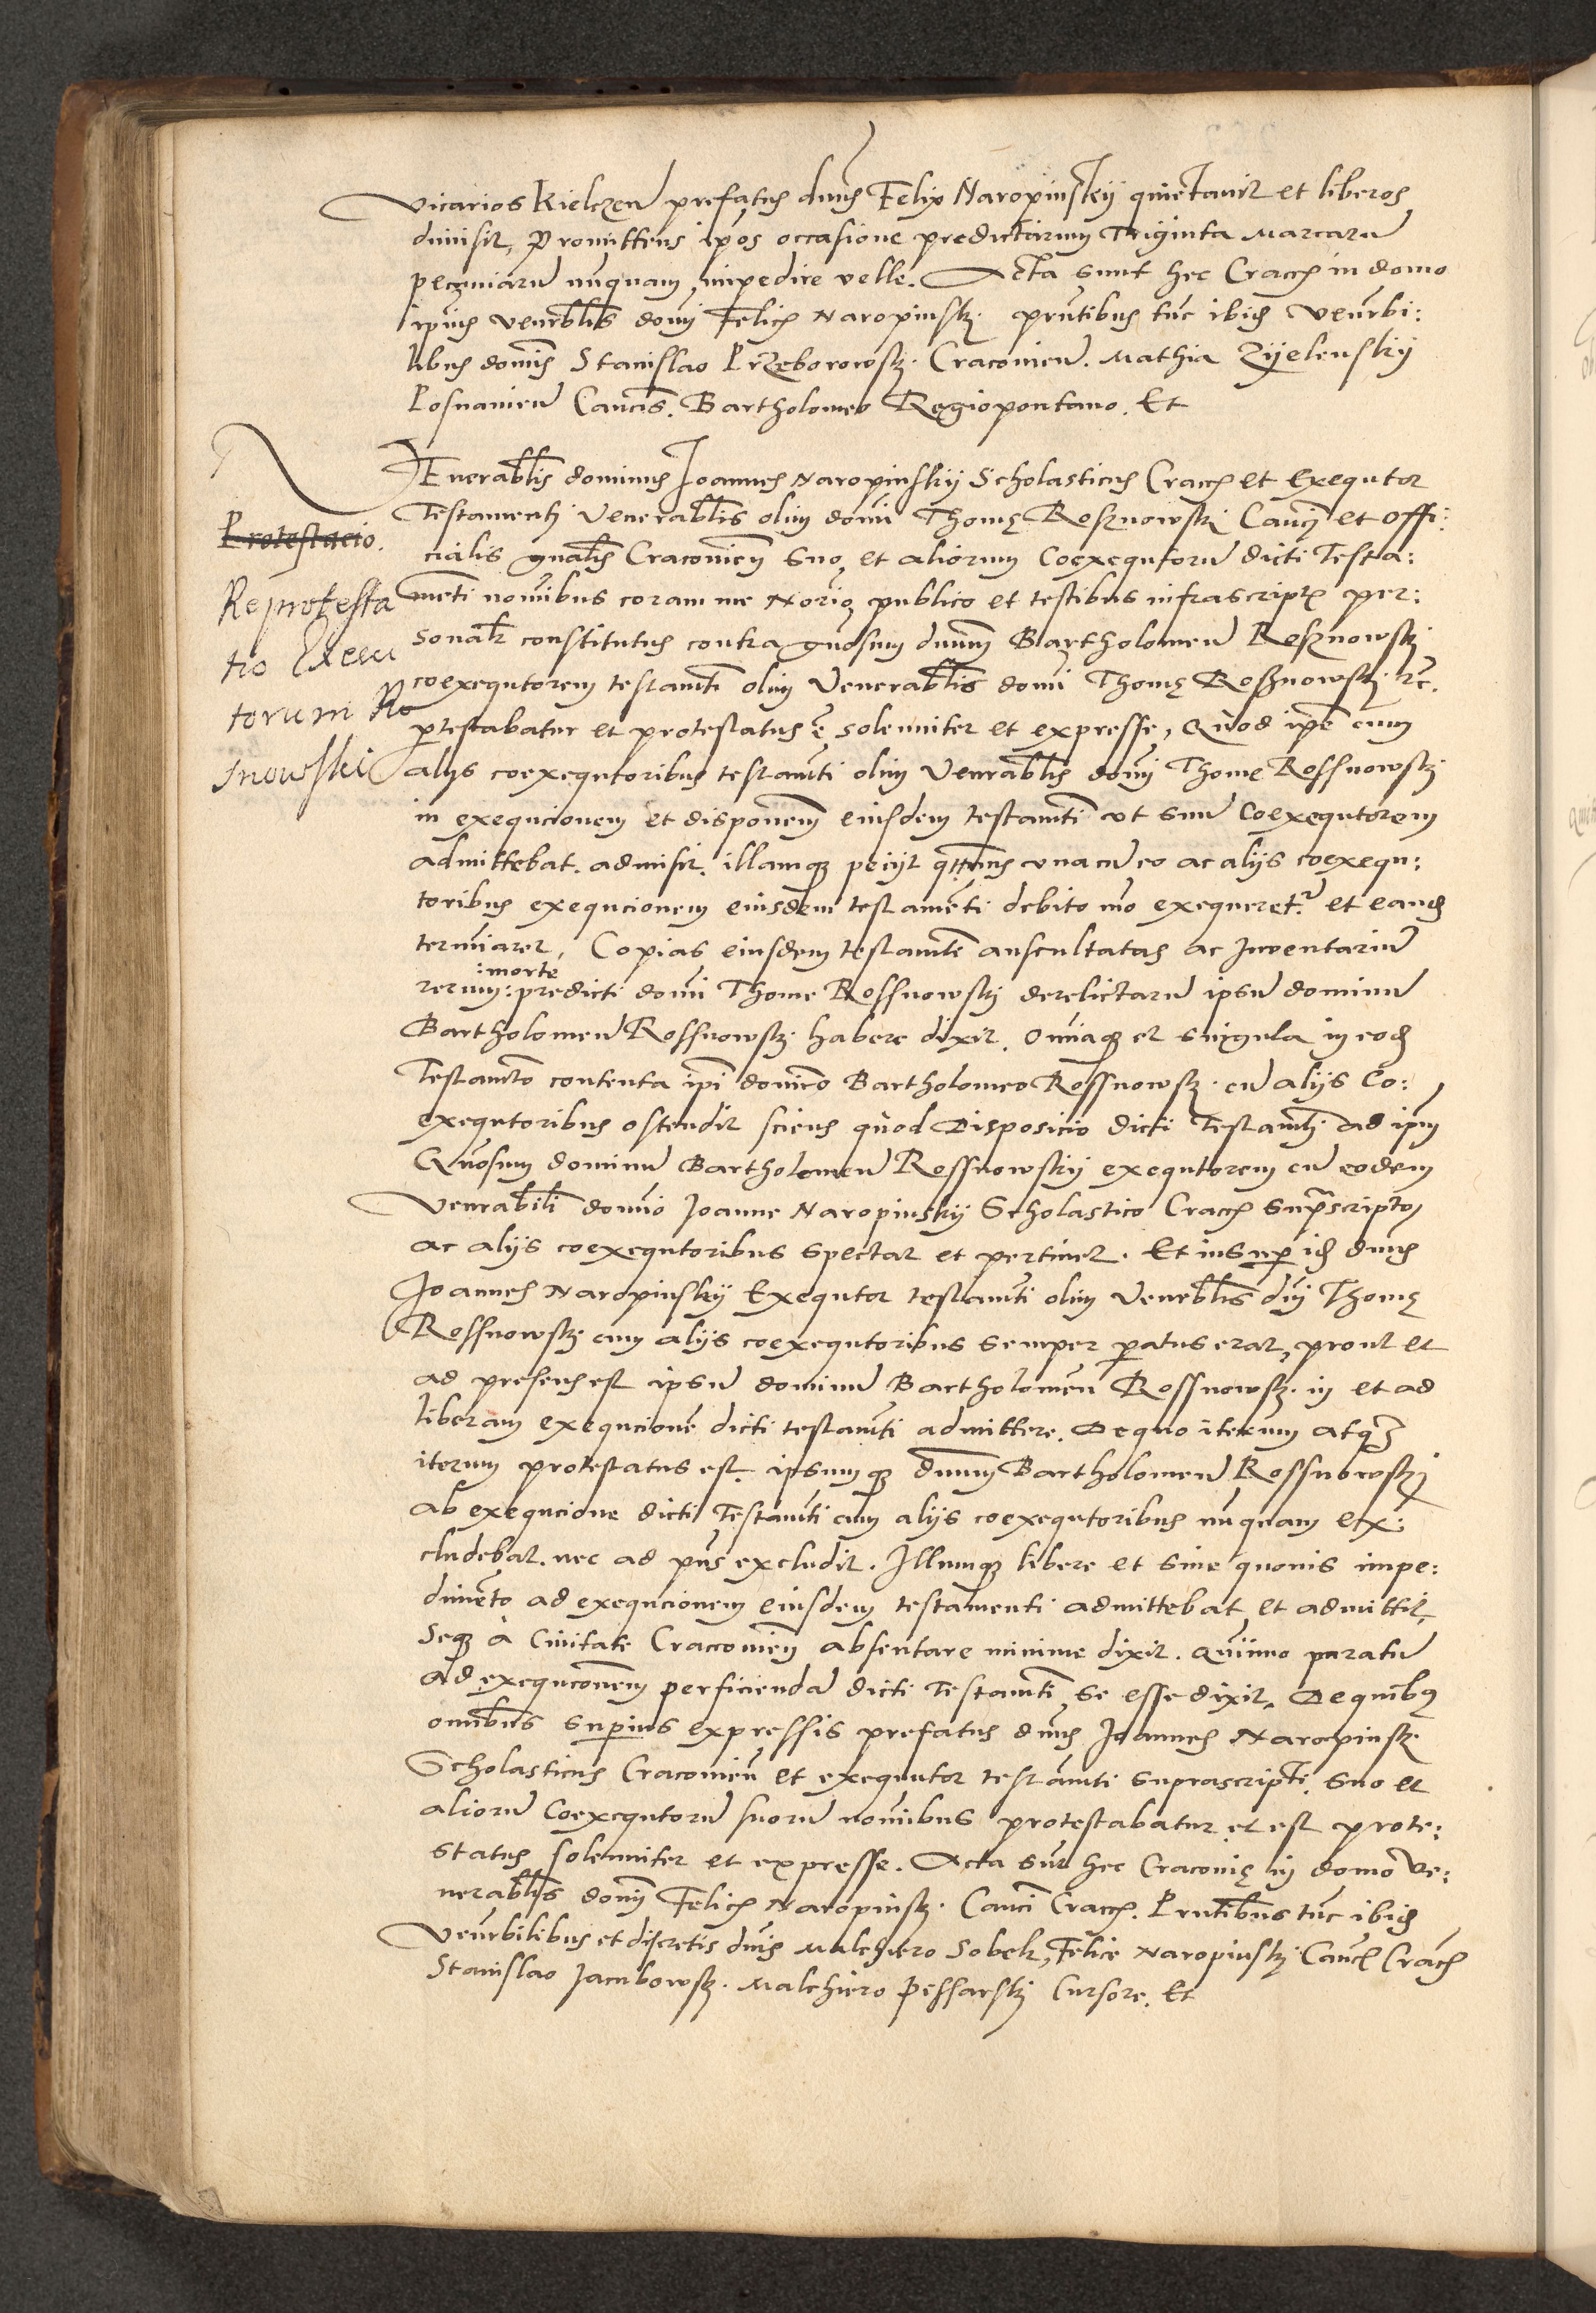 Vicarios Kielczen̄ prefatus dn̄us Felix Naropinskij quietavit et liberos
dimisit, Promittens ip̄os occasione predictarum Triginta Marcarū
pecuniarū nunquam impedire velle. Acta sunt hec Cracc̄ in domo
ip̄ius venerabl̄is domī Felic̄ Naropinsk̄. prn̄tibus tūc ibid̄ venerbi:
libus domīs Stanislao Przeborowsk̄. Craconien̄. Mathia Zijelenskij
Posnanien̄ Canc̄is. Bartholomeo Regiopontano. Et
VEnerabl̄is dominus Joannes Naropinskij Scholasticus Cracc̄ et Exequtor
Testamenti Venerabl̄is olim domī Thomę Rosznowskj Canc̄j et Offi:
Protestacio.
cialis gn̄alis Craconien̄ suo, et aliorum Coexequtorū dicti Testa:
Reprotesta
menti nomībus coram me Nōrio publico et testibus infrascript̄ per:
tio Execu
sonalr̄ constitutus contra gn̄osum dn̄um Bartholomeū Rosznowskj
torum Ro
coexequtorem testamn̄ti olim Venerabl̄is domī Thomę Rosznowskj etc̄.
snowski
p̄testabatur et protestatus ē solenniter et expresse, Quod ip̄e cum
alijs coexequtoribus testamn̄ti olim Venrabl̄is domī Thome Rossnowskj
in exequcionem et disponem̄ eiusdem testamn̄ti vt suū Coexequtorem
admittebat. admisit. illamq̨ peciit q̄tenus vnacū eo ac alijs coexequ:
toribus exequcionem eiusdem testamēti debito mō exequeret̄ et eand̄
termīaret, Copias eiusdem testamn̄ti auscultatas ac Inventariū
:morte
rerum: predicti domī Thome Rossnowskj derelictarū ipsū dominū
Bartholomeū Rossnowsk̄. habere dixit. Omīaq̨ et singula in eod̄
Testamn̄to contenta ip̄i domīo Bartholomeo Rossnowsk̄. cū alijs Co:
exequtoribus ostendit sciens quod Disposicio dicti Testamn̄ti ad ip̄m
Gn̄osum dominū Bartholomeū Rossnowskij exequtorem cū eodem
Venrabili domīo Joanne Naropinskij Scholastico Cracc̄ supͣscripto
ac alijs coexequtoribus spectat et pertinet. Et insup̄ id̄ dn̄us
Joannes Naropinskij Exequtor testamn̄ti olim Venerbl̄is dn̄i Thomę
Rossnowsk̄. cum alijs coexequtoribus semper p̄atus erat, prout et
ad presens est ipsū dominū Bartholomeū Rossnowsk̄. in et ad
liberam exequcionē dicti testamn̄ti admittere. De quo iterum atq̨
iterum protestatus est. ipsumq̨ dn̄um Bartholomeū Rossnowskj
ab exequcione dicti Testamn̄ti cum alijs coexequtoribus nunquam ex:
cludebat. nec ad pn̄s excludit. Illumq̨ libere et sine quouis impe:
dimēto ad exequcionem eiusdem testamenti admittebat et admittit.
Seq̨ à Ciuitate Cracconien̄ absentare minime dixit. Quīimo paratū
ad exequc̄onem perficiendā dicti Testamn̄ti se esse dixit. De quibꝰ
omībus sup̄ius expressis prefatus dn̄us Joannes Naropinsk̄.
Scholasticus Craconien̄ et exequutor testamn̄ti suprascripti. suo et
aliorū Coexequtorū suorū nomībus protestabatur et est prote:
status solenniter et expresse. Acta sūt hec Craconię in domo Ve:
nerabl̄is domīj Felic̄ Naropinsk̄. Canc̄i Cracc̄. Prn̄tibus tūc ibid̄
Venerbilibus et discretis dn̄is Malchiero Sobek, Felice Naropinskj. Canc̄ Cracc̄
Stanislao Jacubowsk̄. Malchiero Pessarskj Cursore. Et